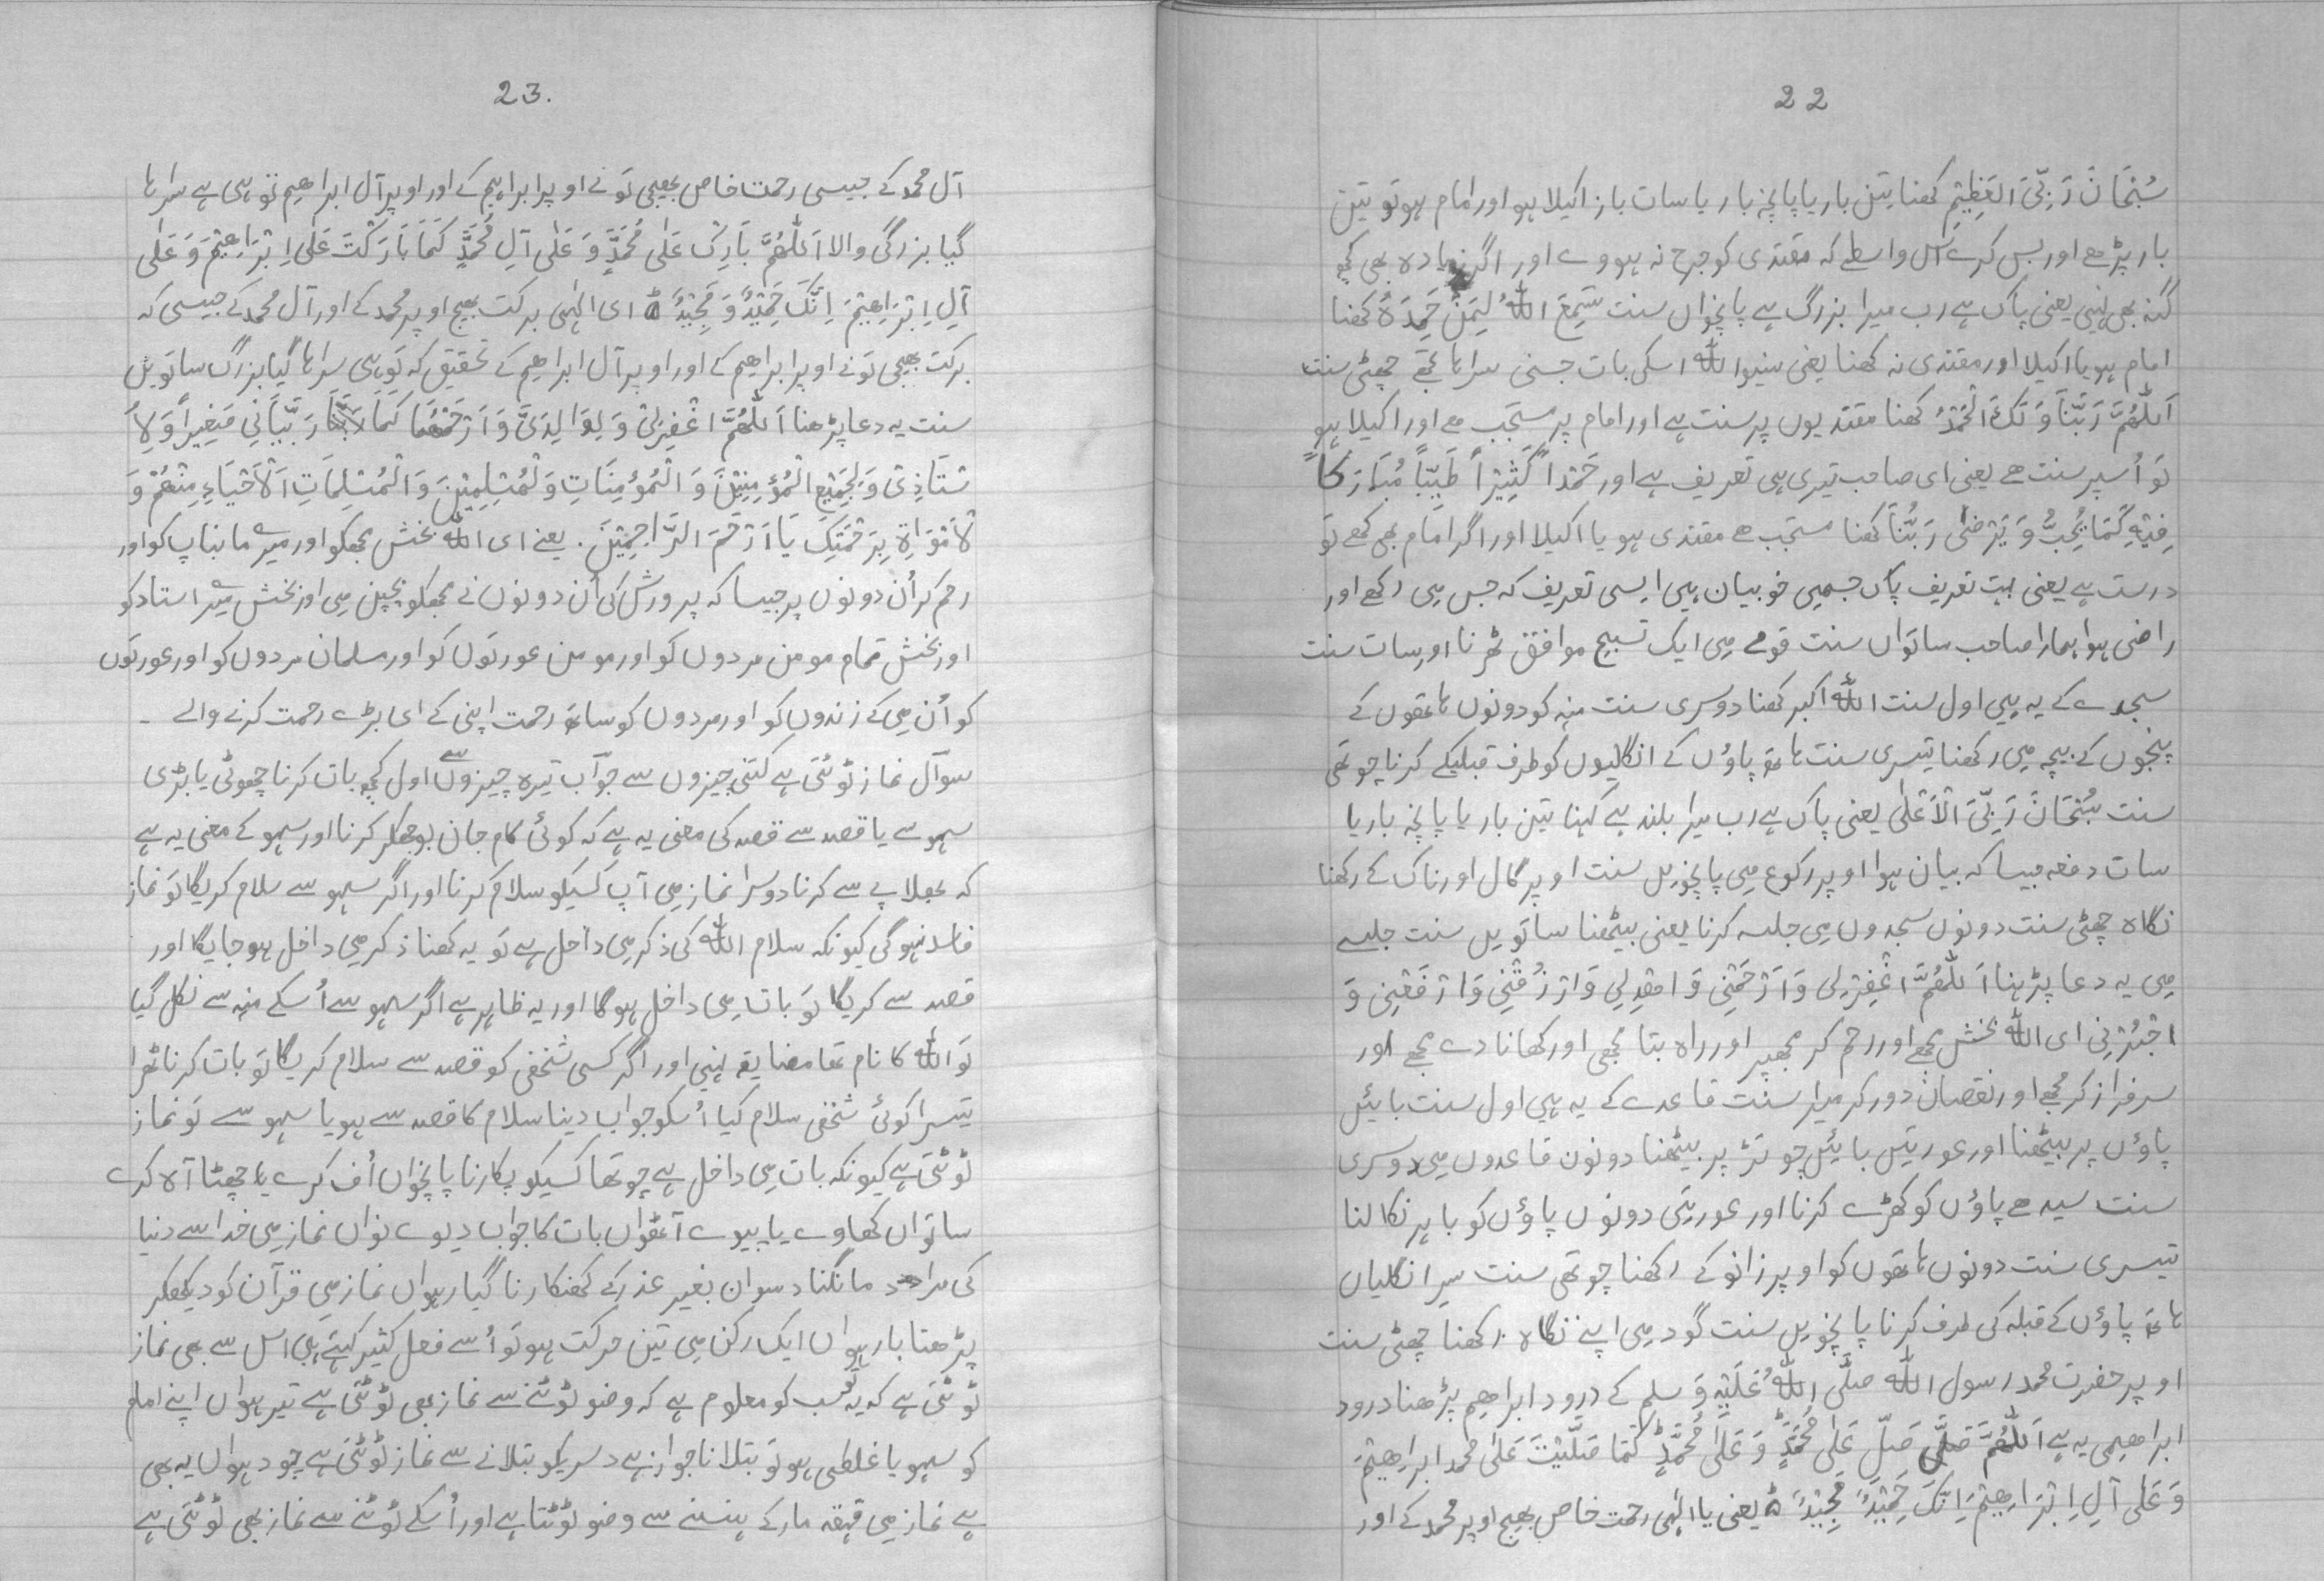 22
سُبْحَانَ رَبِّیَ الْعَظِیْمِ کھنا تین بار یا پانچ بار یا سات بار اکیلا ہو اور امام ہو تو تین
بار پڑھے اور بس کرے اس واسطے کہ مقتدی کو حرج نہ ہووے اور اگر زیادہ بھی کچھ
گنہ بھی نہیں یعنی پاک ہے رب میرا بزرگ ہے پانچواں سنت سَمِعَ اللّٰہُ لِمَنْ حَمِدَہٗ کھنا
امام ہو یا اکیلا اور مقتدی نہ کھنا یعنی سنیو اللہ اسکی بات جسنی سراہا تجھے چھٹی سنت
اَللّٰھُمَّ رَبَّنَا وَ لَکَ الْحَمْدُ کھنا مقتدیوں پر سنت ہے اور امام پر مستحب ہے اور اکیلا ہو
تو اُسپر سنت ہے یعنی ای صاحب تیری ہی تعریف ہے اور حَمْدًا کَثِیْرًا طَیِّبًا مُبَارَکًا
فِیْہِ کَمَا یُحِبُّ وَ یَرْضٰی رَبُّنَا کھنا مستحب ہے مقتدی ہو یا اکیلا اور اگر امام بھی کھے تو
درست ہے یعنی بہت تعریف پاک جسمیں خوبیان ہیں ایسی تعریف کہ جس میں رکھے اور
راضی ہوا ہمارا صاحب ساتواں سنت قومے میں ایک تسبیح موافق ٹھرنا اور سات سنت
سجدے کے یہ ہیں اول سنت اللہ اکبر کھنا دوسری سنت منہ کو دونوں ہاتھوں کے
پنجوں کے بیچہ میں رکھنا تیسری سنت ہاتھ پاؤں کے انگلیوں کو طرف قبلیکے کرنا چوتھی
سنت سُبْحَانَ رَبِّیَ الْاَعْلٰی یعنی پاک ہے رب میرا بلند ہے کہنا تین بار یا پانچ بار یا
سات دفعہ جیسا کہ بیان ہوا اوپر رکوع میں پانچویں سنت اوپر گال اور ناک کے رکھنا
نگاہ چھٹی سنت دونوں سجدوں میں جلسہ کرنا یعنی بیٹھنا ساتویں سنت جلسے
میں یہ دعا پڑہنا اَللّٰھُمَّ اغْفِرْلِی وَ ارْحَمْنِی وَ اھْدِلِی وَ ارْزُقْنِی وَ ارْفَعْنِی وَ
اجْبُرْنِی ای اللہ بخش مجھے اور رحم کر مجھپر اور راہ بتا مجھی اور کھانا دے مجھے اور
سرفراز کر مجھے اور نقصان دور کر میرا سنت قاعدے کے یہ ہیں اول سنت بائیں
پاؤں پر بیٹھنا اور عورتیں بائیں چوتڑ پر بیٹھنا دونوں قاعدوں میں دوسری
سنت سیدھے پاؤں کو کھڑے کرنا اور عورتیں دونوں پاؤں کو باہر نکالنا
تیسری سنت دونوں ہاتھوں کو اوپر زانو کے رکھنا چوتھی سنت سر انگلیاں
ہاتھ پاؤں کے قبلہ کی طرف کرنا پانچویں سنت گود میں اپنے نگاہ رکھنا چھٹی سنت
اوپر حضرت محمد رسول اللہ صَلَّی اللّٰہُ عَلَیْہِ وَ سلم کے درود ابراھیم پڑھنا درود
ابراھیمی یہ ہے اَللّٰھُمَّ صَلِّی صَلِّ عَلٰی مُحَمَّدٍ وَ عَلٰی مُحَمَّدٍ کَمَا صَلَّیْتَ عَلٰی محمد ابراھِیْمَ
وَ عَلٰی آلِ اِبْرَاھِیْمَ اِنَّکَ حَمِیْدٌ مَجِیْدٌ یعنی یا الٰہی رحمت خاص بھیج اوپر محمد کے اور
23.
آل محمد کے جیسی رحمت خاص بھیجی تو نے اوپر ابراہیم کے اور اوپر آل ابراھیم تو ہی ہے سراہا
گیا بزرگی والا اَللّٰھُمَّ بَارِکْ عَلٰی مُحَمَّدٍ وَ عَلٰی آلِ مُحَمَّدٍ کَمَا بَارَکْتَ عَلٰی اِبْرَاھِیْمَ وَ عَلٰی
آلِ اِبْرَاھِیْمَ اِنَّکَ حَمِیْدٌ وَ مَجِیْدٌ ای الٰہی برکت بھیج اوپر محمد کے اور آل محمد کے جیسی کہ
برکت بھیجی تو نے اوپر ابراھیم کے اور اوپر آل ابراھیم کے تحقیق کہ تو ہی سراہا گیا بزرگ ساتویں
سنت یہ دعا پڑھنا اَللّٰھُمَّ اغْفِرْلِیْ وَ لِوَالِدَیَّ وَ ارْحَمْھُمَا کَمَا رَبَّیَانِی صَغِیْرًا وَ لِاُ
سْتَاذِیْ وَ لِجَمِیْعِ الْمُؤْمِنِیْنَ وَ الْمُؤْمِنَاتِ وَ لْمُسْلِمِیْنَ وَ الْمُسْلِمَاتِ اَلْاَحْیَاءِ مِنْھُمْ وَ
لْاَمْوَاۃِ بِرَحْمَتِکَ یَا اَرْحَمَ الرَّاحِمِیْنَ. یعنے ای اللہ بخش مجھکو اور میرے ما نباپ کو اور
رحم کر اُن دونوں پر جیسا کہ پرورش کی اُن دونوں نے مجھکو بچپن میں اور بخش میرے استاد کو
اور بخش تمام مومن مردوں کو اور مومن عورتوں کو اور مسلمان مردوں کو اور عورتوں
کو اُن میں کے زندوں کو اور مردوں کو ساتھ رحمت اپنی کے ای بڑے رحمت کرنے والے ۔
سوآل نماز ٹوٹتی ہے کتنی چیزوں سے جوآب تیرہ چیزوں سے اول کچھ بات کرنا چھوٹی یا بڑی
سہو سے یا قصد سے قصد کی معنی یہ ہے کہ کوئی کام جان بوجھکر کرنا اور سہو کے معنی یہ ہے
کہ بھولاپے سے کرنا دوسرا نماز میں آپ کسیکو سلام کرنا اور اگر سہو سے سلام کریگا تو نماز
فاسد نہوگی کیونکہ سلام اللہ کی ذکر میں داخل ہے تو یہ کھنا ذکر میں داخل ہو جایگا اور
قصد سے کریگا تو بات میں داخل ہوگا اور یہ ظاہر ہے اگر سہو سے اُسکے منہ سے نکل گیا
تو اللہ کا نام تھا مضایقہ نہیں اور اگر کسی شخص کو قصد سے سلام کریگا تو بات کرنا ٹھرا
تیسرا کوئی شخص سلام کیا اُسکو جواب دینا سلام کا قصد سے ہو یا سہو سے تو نماز
ٹوٹتی ہے کیونکہ بات میں داخل ہے چوتھا کسیکو پکارنا پانچواں اُف کرے یا چھٹا آہ کرے
ساتواں کھاوے یا پیوے آٹھواں بات کا جواب دیوے نواں نماز میں خدا سے دنیا
کی مراد مانگنا دسوان بغیر عذر کے کھنکارنا گیارہواں نماز میں قرآن کو دیکھکر
پڑھنا بارہواں ایک رکن میں تین حرکت ہو تو اُسے فعل کثیر کہتے ہیں اس سے بھی نماز
ٹوٹتی ہے کہ یہ تو سب کو معلوم ہے کہ وضو ٹوٹنے سے نماز بھی ٹوٹتی ہے تیرہواں اپنے امام
کو سہو یا غلطی ہو تو بتلانا جواز ہے دسریکو بتلانے سے نماز ٹوٹتی ہے چودہواں یہ بھی
ہے نماز میں قہقہ مار کے ہنسنے سے وضو ٹوٹتا ہے اور اُسکے ٹوٹنے سے نماز بھی ٹوٹتی ہے